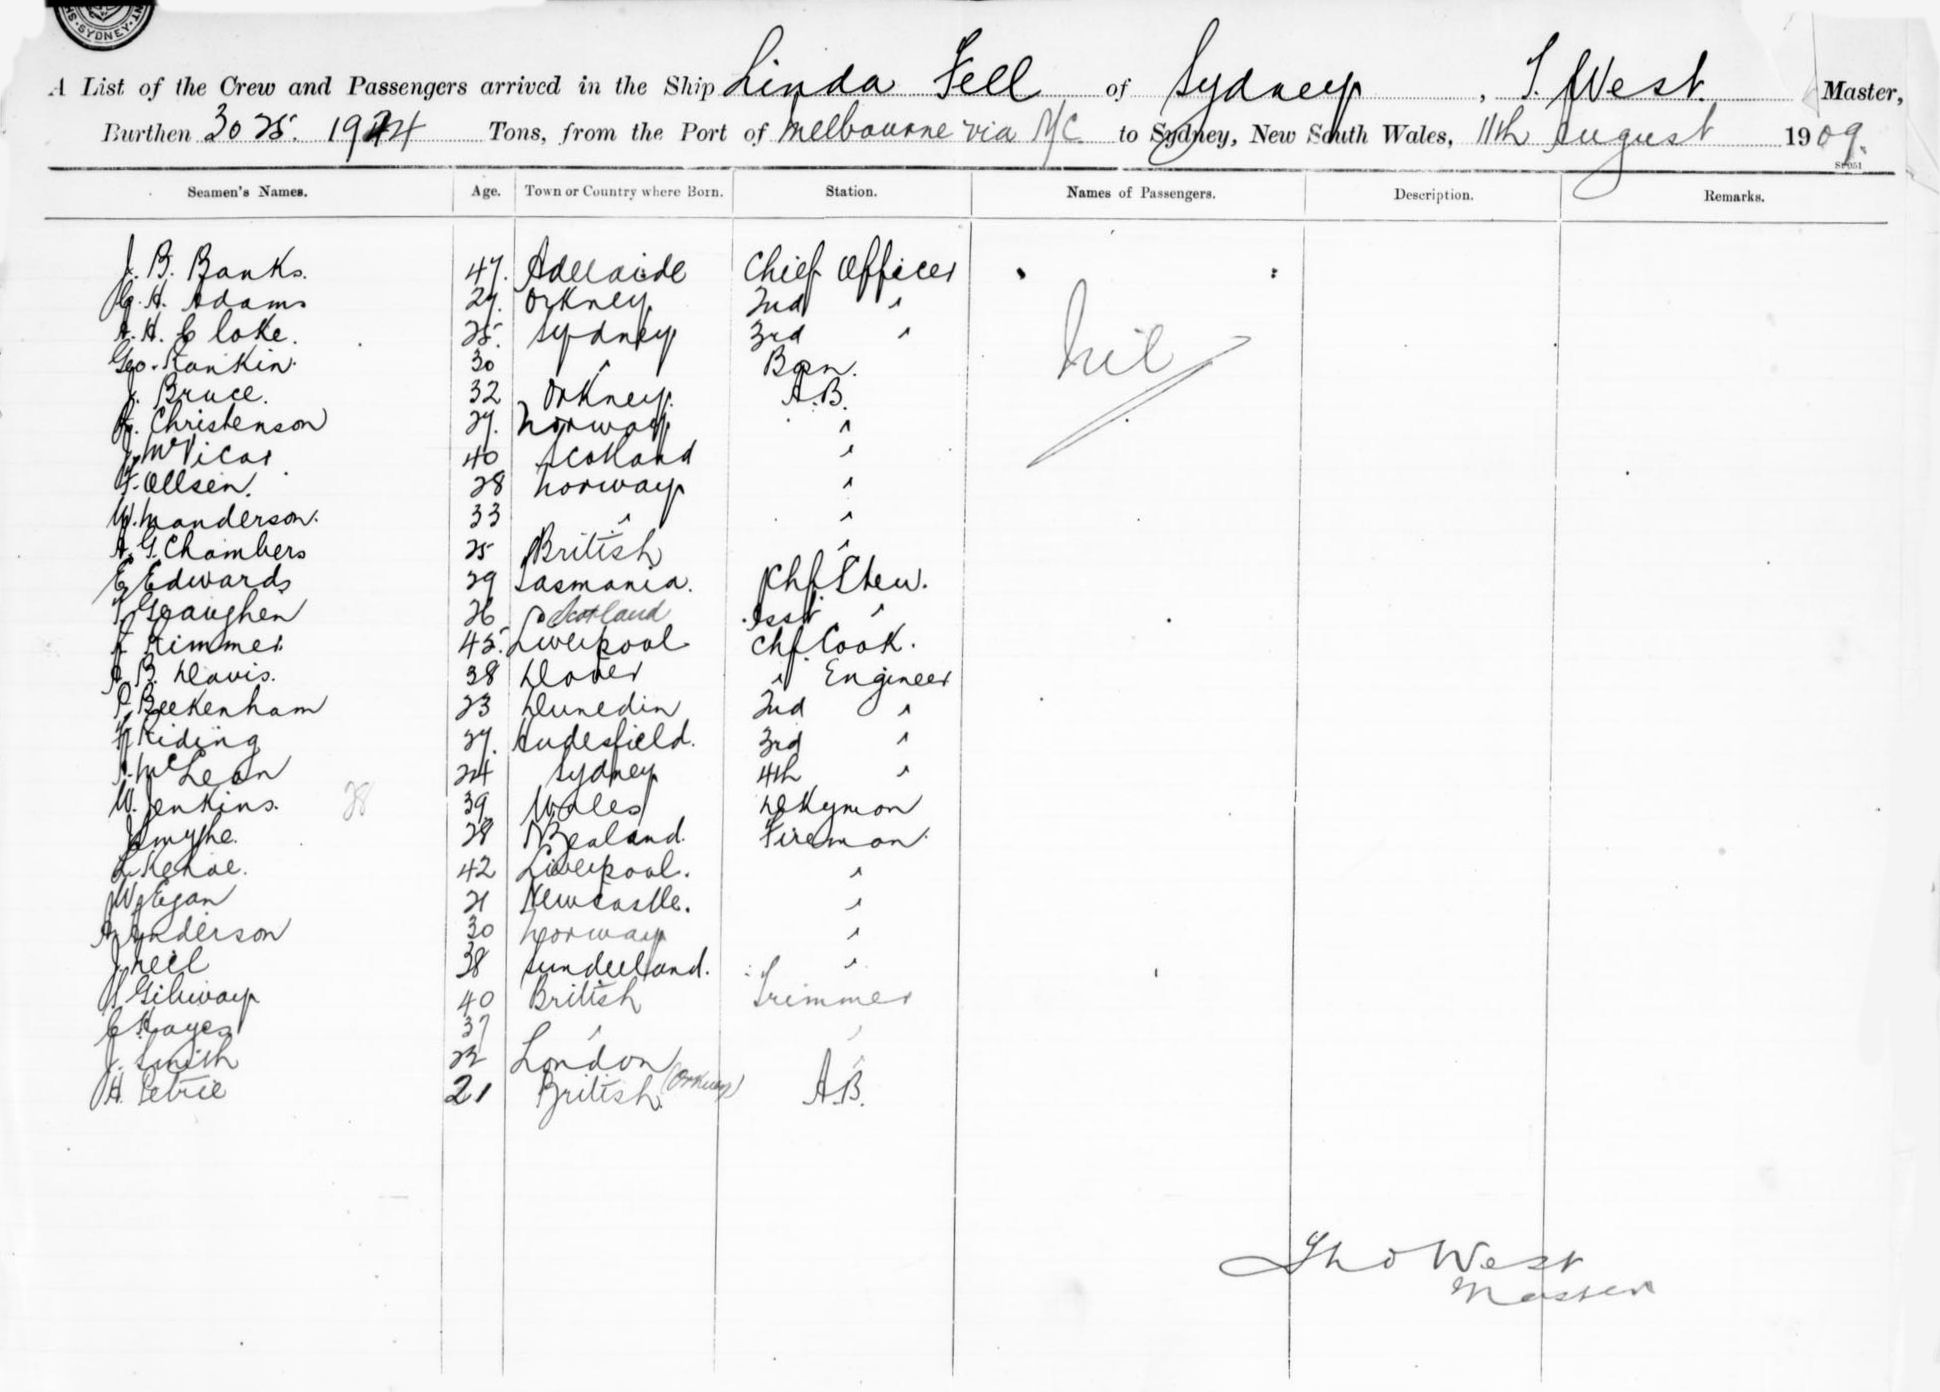 SYDNEY
A List of the Crew and Passengers arrived in the Ship Linda Fell of Sydney, T. West. Master,
Burthen 3025. 1924 Tons, from the Port of Melbourne via N/C to Sydney, New South Wales, 11th August 1909.
Seamen's Names. Age. Town or Country where Born. Station. Names of Passengers. Description. Remarks.
J. B. Banks. 47. Adelaide Chief Officer
G. H. Adams 27. Orkney 2nd "
A. H. Cloke. 25. Sydney 3rd " nil
Geo. Rankin. 30 " Bsn.
J. Bruce. 32 Orkney. A.B.
Christenson 27. Norway "
J. McVicar 40 Scotland "
F. Ollsen. 28 Norway "
W. Manderson. 33 " "
A. G. Chambers 25 British "
E Edwards 29 Tasmania. Chf. Stew.
T Geaughen 26 Scotland Asst "
Rimmer 45. Liverpool Chf. Cook.
A. B. Davis. 38 Dover " Engineer
P Beekenham 23 Dunedin 2nd "
Riding 27. Hudesfield. 3rd "
McLean 24 Sydney 4th "
W. Jenkins. 28 39 Wales Dkyman
J Smythe. 28 N Zealand. Fireman.
L Kehoe. 42 Liverpool. "
W Egan 21 Newcastle. "
A Anderson 30 Norway "
J Neil 38 Sunderland. "
Gilway 40 British Trimmer
C Hayes 37 " "
J. Smith 22 London "
H. Petrie 21 British. (Orkney) A.B.
Tho West
Master